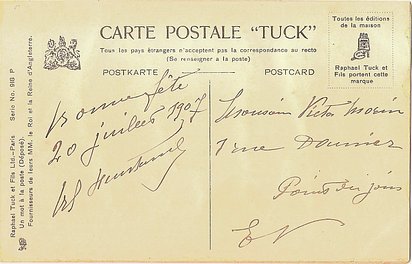 CARTE POSTALE “TUCK”
Tous les pays étrangers n'acceptent pas la correspondance au recto
(Se renseigner a la poste)
POSTKARTE
POSTCARD
Toutes les éditions
de la maison
Raphael Tuck et
Fils portent cette
marque
Raphael Tuck et Fils Ltd.—Paris Serie No. 918 P
Un mot à la poste (Déposé).
Fournisseurs de leurs MM. le Roi et la Reine d'Angleterre.
Bonne fête
20 juillet 1907
Monsieur Victor Morin
7 rue Daumier
Point du jour
EV